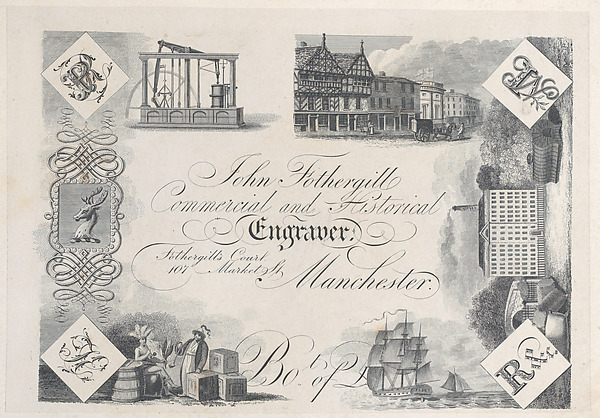 John Fothergill
Commercial and Historical
Engraver.
Fothergill's Court
107 Market St
Manchester.
Bo.t of